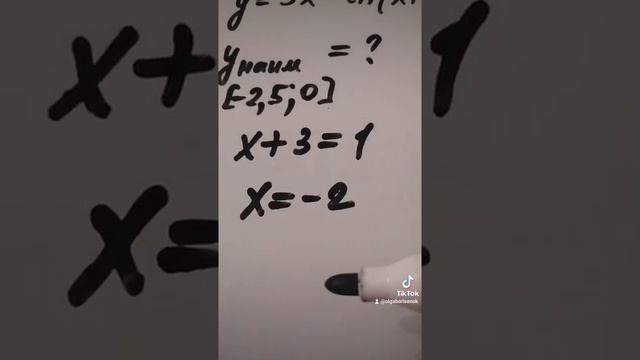 y наим = ?
[-2,5; 0]
x + 3 = 1
x = -2
TikTok
@olgaborisenok